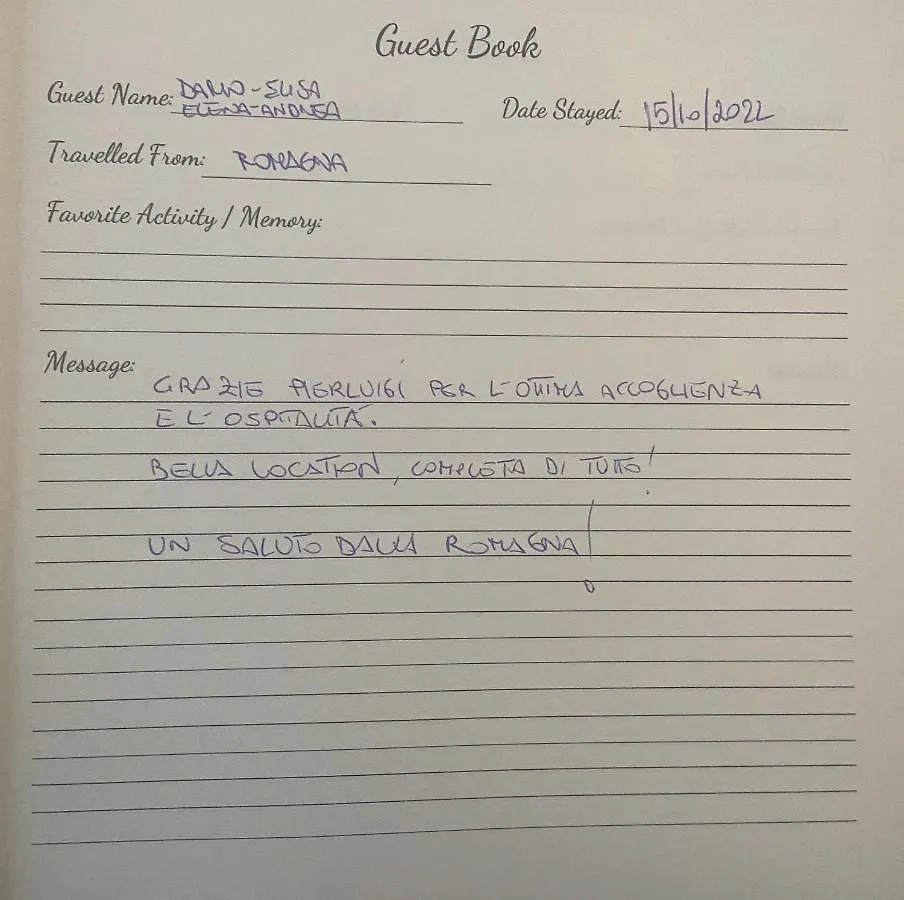 Guest Book
Guest Name: DARIO - ELISA
ELENA - ANDREA
Date Stayed: 15/10/2022
Travelled From: ROMAGNA
Favorite Activity / Memory:
Message:
GRAZIE PIERLUIGI PER L'OTTIMA ACCOGLIENZA
E L'OSPITALITÀ.
BELLA LOCATION, COMPLETA DI TUTTO!
UN SALUTO DALLA ROMAGNA!